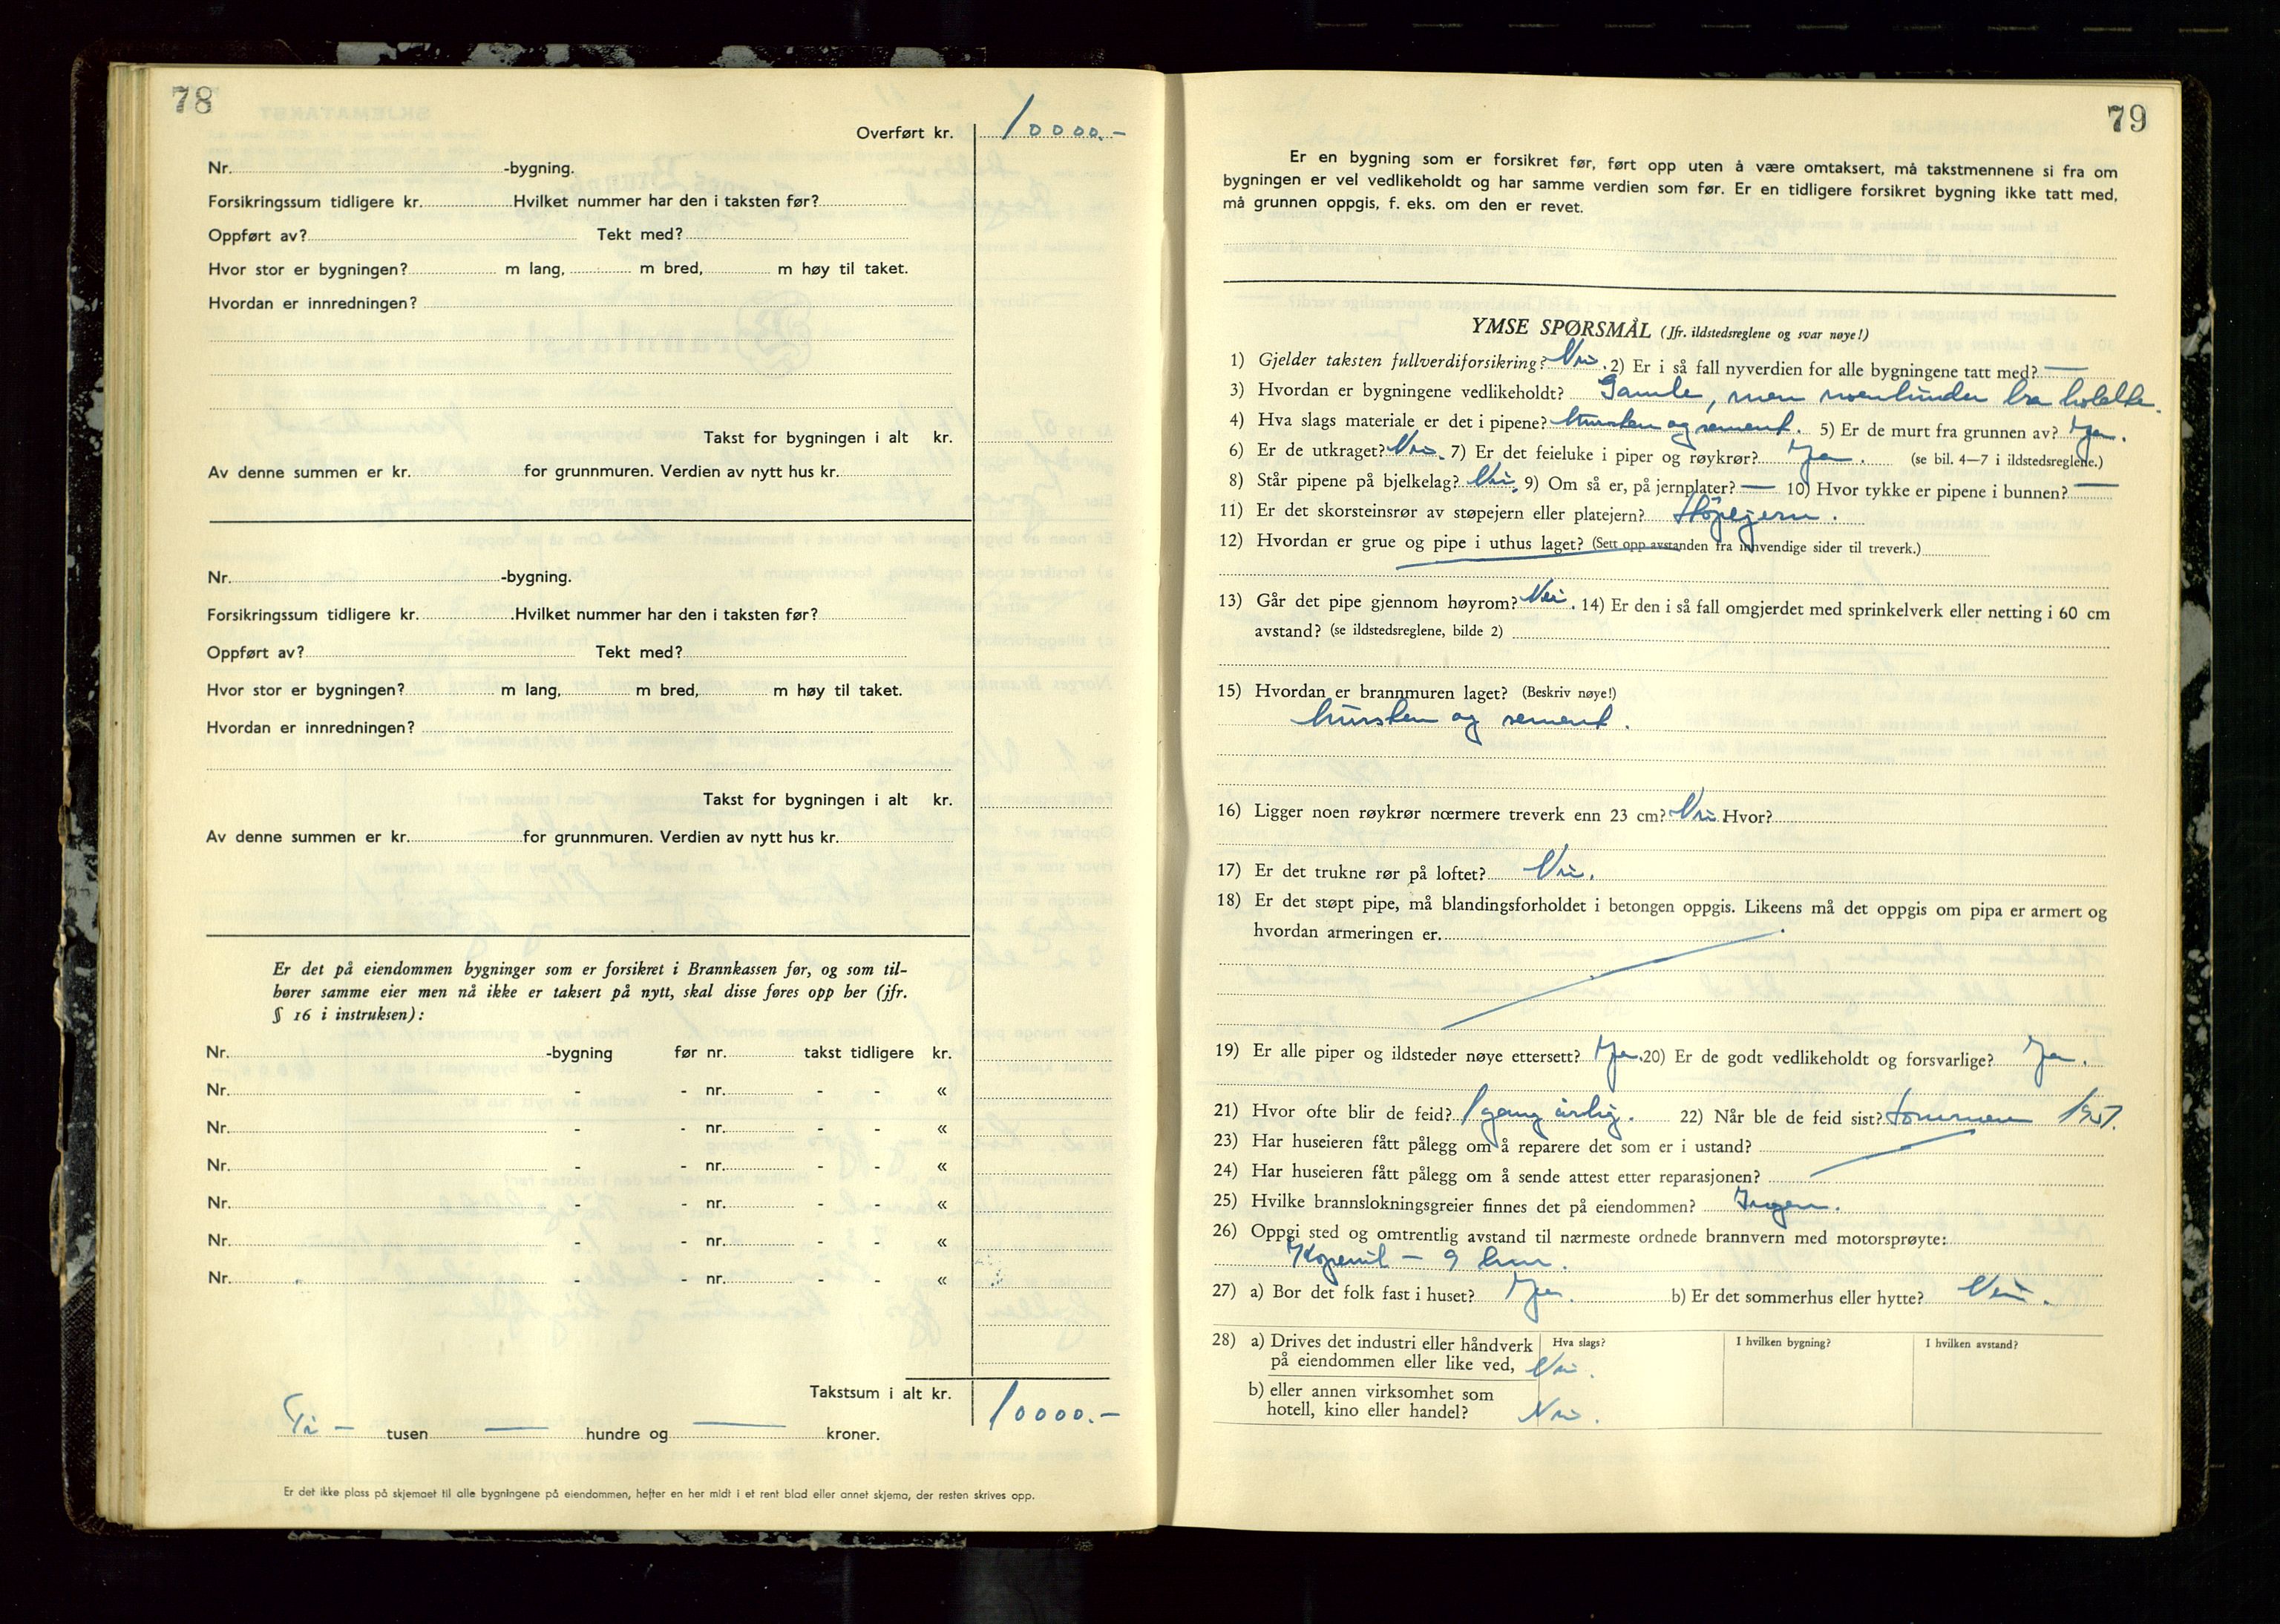 78
Overført kr. 10000.-
Nr. -bygning.
Forsikringssum tidligere kr. Hvilket nummer har den i taksten før?
Oppført av? Tekt med?
Hvor stor er bygningen? m lang, m bred, m høy til taket.
Hvordan er innredningen?
Takst for bygningen i alt kr.
Av denne summen er kr. for grunnmuren. Verdien av nytt hus kr.
Nr. -bygning.
Forsikringssum tidligere kr. Hvilket nummer har den i taksten før?
Oppført av? Tekt med?
Hvor stor er bygningen? m lang, m bred, m høy til taket.
Hvordan er innredningen?
Takst for bygningen i alt kr.
Av denne summen er kr. for grunnmuren. Verdien av nytt hus kr.
Er det på eiendommen bygninger som er forsikret i Brannkassen før, og som til-
hører samme eier men nå ikke er taksert på nytt, skal disse føres opp her (jfr.
§ 16 i instruksen):
Nr. -bygning før nr. takst tidligere kr.
Nr. - - nr. - - «
Nr. - - nr. - - «
Nr. - - nr. - - «
Nr. - - nr. - - «
Nr. - - nr. - - «
Nr. - - nr. - - «
Takstsum i alt kr. 10000.-
Ti - tusen — hundre og — kroner.
Er det ikke plass på skjemaet til alle bygningene på eiendommen, hefter en her midt i et rent blad eller annet skjema, der resten skrives opp.
79
Er en bygning som er forsikret før, ført opp uten å være omtaksert, må takstmennene si fra om
bygningen er vel vedlikeholdt og har samme verdien som før. Er en tidligere forsikret bygning ikke tatt med,
må grunnen oppgis, f. eks. om den er revet.
YMSE SPØRSMÅL (Jfr. ildstedsreglene og svar nøye!)
1) Gjelder taksten fullverdiforsikring? Nei. 2) Er i så fall nyverdien for alle bygningene tatt med? —
3) Hvordan er bygningene vedlikeholdt? Gamle, men noenlunder bra holdte.
4) Hva slags materiale er det i pipene? Mursten og sement. 5) Er de murt fra grunnen av? Ja.
6) Er de utkraget? Nei. 7) Er det feieluke i piper og røykrør? Ja. (se bil. 4—7 i ildstedsreglene.)
8) Står pipene på bjelkelag? Nei. 9) Om så er, på jernplater? — 10) Hvor tykke er pipene i bunnen? —
11) Er det skorsteinsrør av støpejern eller platejern? Støpejern.
12) Hvordan er grue og pipe i uthus laget? (Sett opp avstanden fra innvendige sider til treverk.)
13) Går det pipe gjennom høyrom? Nei. 14) Er den i så fall omgjerdet med sprinkelverk eller netting i 60 cm
avstand? (se ildstedsreglene, bilde 2)
15) Hvordan er brannmuren laget? (Beskriv nøye!)
Mursten og sement.
16) Ligger noen røykrør nærmere treverk enn 23 cm? Nei. Hvor?
17) Er det trukne rør på loftet? Nei.
18) Er det støpt pipe, må blandingsforholdet i betongen oppgis. Likeens må det oppgis om pipa er armert og
hvordan armeringen er.
19) Er alle piper og ildsteder nøye ettersett? Ja. 20) Er de godt vedlikeholdt og forsvarlige? Ja.
21) Hvor ofte blir de feid? 1 gang årlig. 22) Når ble de feid sist? Sommeren 1957.
23) Har huseieren fått pålegg om å reparere det som er i ustand?
24) Har huseieren fått pålegg om å sende attest etter reparasjonen?
25) Hvilke brannslokningsgreier finnes det på eiendommen? Ingen.
26) Oppgi sted og omtrentlig avstand til nærmeste ordnede brannvern med motorsprøyte:
Kopervik — 9 km.
27) a) Bor det folk fast i huset? Ja. b) Er det sommerhus eller hytte? Nei.
28) a) Drives det industri eller håndverk Hva slags? I hvilken bygning? I hvilken avstand?
på eiendommen eller like ved, Nei.
b) eller annen virksomhet som
hotell, kino eller handel? Nei.